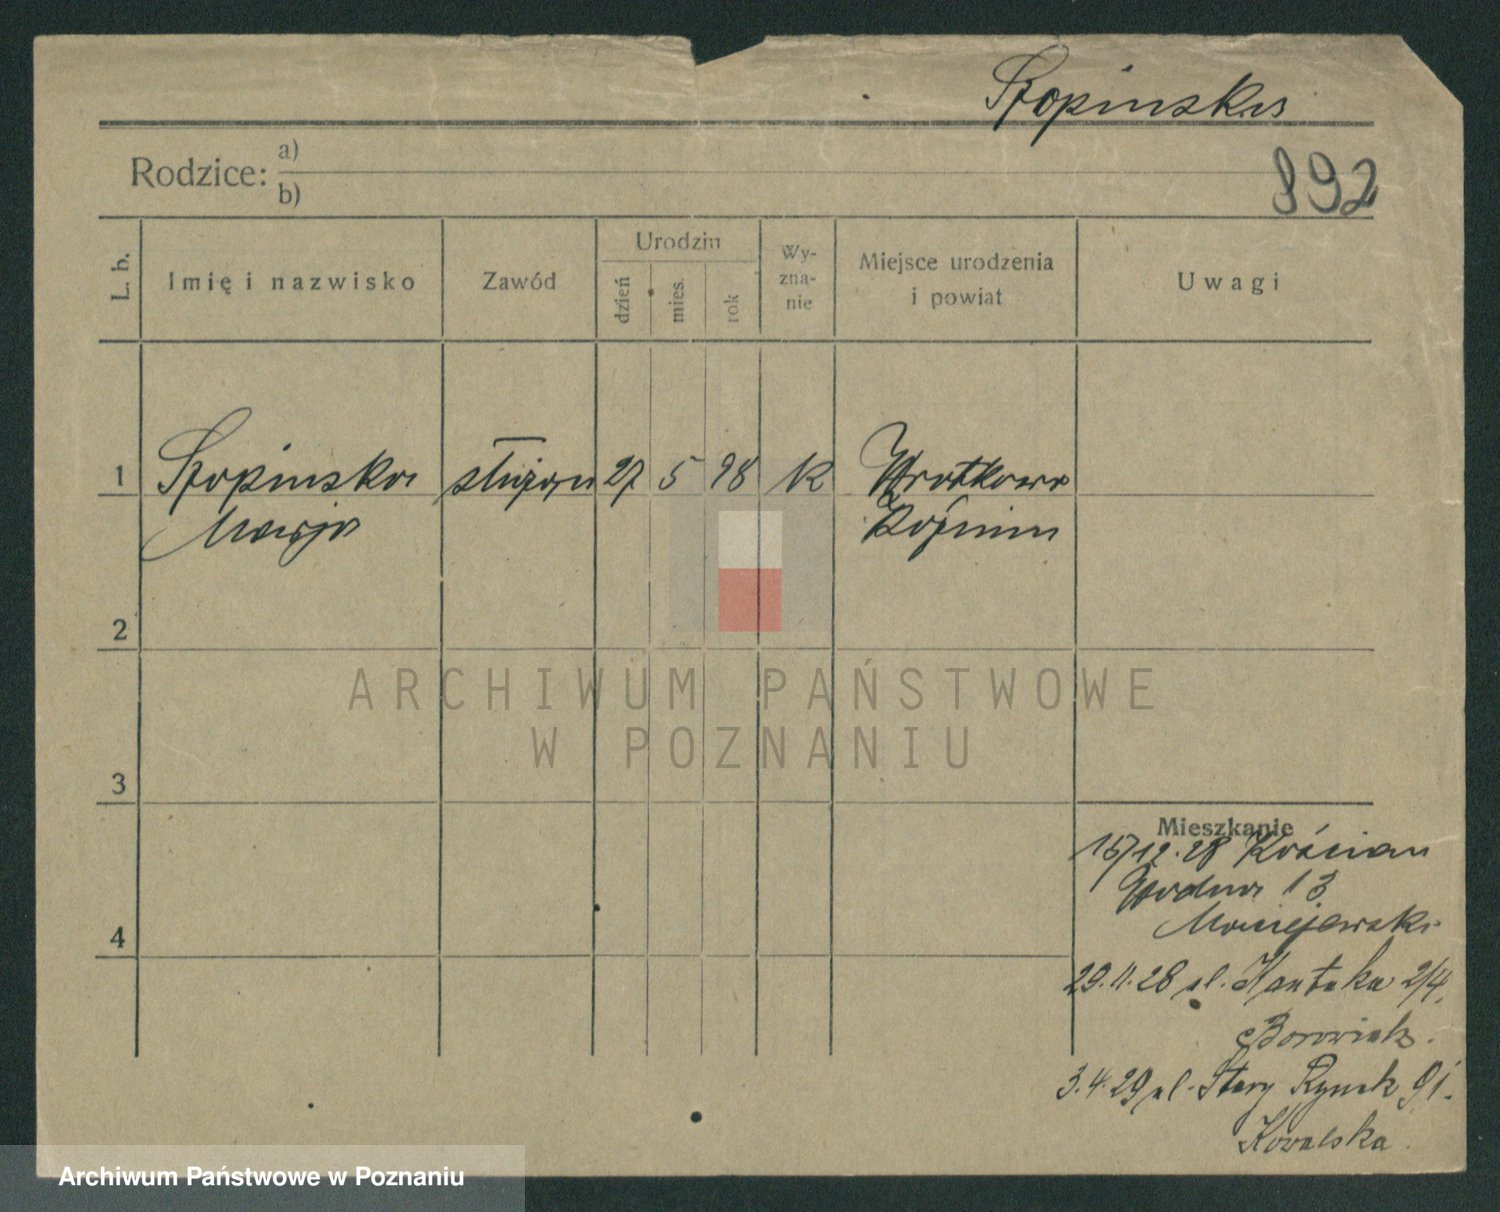 Szopinska
892
Rodzice: a)
b)
L. b.
Imię i nazwisko
Zawód
Urodzin
dzień
mies.
rok
Wy-
zna-
nie
Miejsce urodzenia
i powiat
Uwagi
1 Szopinska służąca 27 5 98 k Wrotkowo
Marja Koźmin
2
3
4
ARCHIWUM PAŃSTWOWE
W POZNANIU
Mieszkanie
Kościan
Wodna 13
Maciejewski
29.11.28 ul. Kantaka 2/4.
Borowiak.
3.4.29 ul. Stary Rynek 91.
Kowalska.
Archiwum Państwowe w Poznaniu